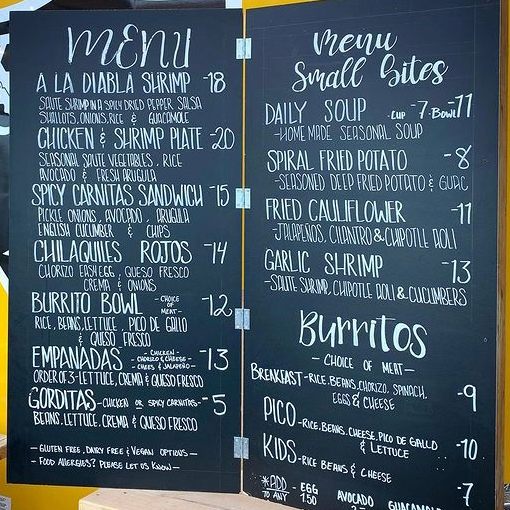 MENU
A LA DIABLA SHRIMP -18
SAUTE SHRIMP IN A SPICY DRIED PEPPER SALSA
SHALLOTS, ONIONS, RICE & GUACAMOLE
CHICKEN & SHRIMP PLATE -20
SEASONAL SAUTE VEGETABLES, RICE
AVOCADO & FRESH ARUGULA
SPICY CARNITAS SANDWICH -15
PICKLE ONIONS, AVOCADO, ARUGULA
ENGLISH CUCUMBER & CHIPS
CHILAQUILES ROJOS -14
CHORIZO EASY EGG, QUESO FRESCO
CREMA & ONIONS
BURRITO BOWL -CHOICE OF MEAT- -12
RICE, BEANS, LETTUCE, PICO DE GALLO
& QUESO FRESCO
EMPANADAS -CHICKEN- -CHORIZO & CHEESE- -CHEES & JALAPEÑO- -13
ORDER OF 3-LETTUCE, CREMA & QUESO FRESCO
GORDITAS -CHICKEN OR SPICY CARNITAS- -5
BEANS, LETTUCE, CREMA & QUESO FRESCO
- GLUTEN FREE, DAIRY FREE & VEGAN OPTIONS -
- FOOD ALLERGIES? PLEASE LET US KNOW -
menu
Small Bites
DAILY SOUP -CUP -7 -BOWL -11
-HOME MADE SEASONAL SOUP
SPIRAL FRIED POTATO -8
-SEASONED DEEP FRIED POTATO & GUAC
FRIED CAULIFLOWER -11
-JALAPEÑOS, CILANTRO & CHIPOTLE AOLI
GARLIC SHRIMP -13
-SAUTE SHRIMP, CHIPOTLE AOLI & CUCUMBERS
Burritos
- CHOICE OF MEAT -
BREAKFAST -RICE, BEANS, CHORIZO, SPINACH,
EGGS & CHEESE -9
PICO -RICE, BEANS, CHEESE, PICO DE GALLO
& LETTUCE -10
KIDS -RICE BEANS & CHEESE -7
*ADD - EGG AVOCADO GUACAMOLE
TO ANY 1.50